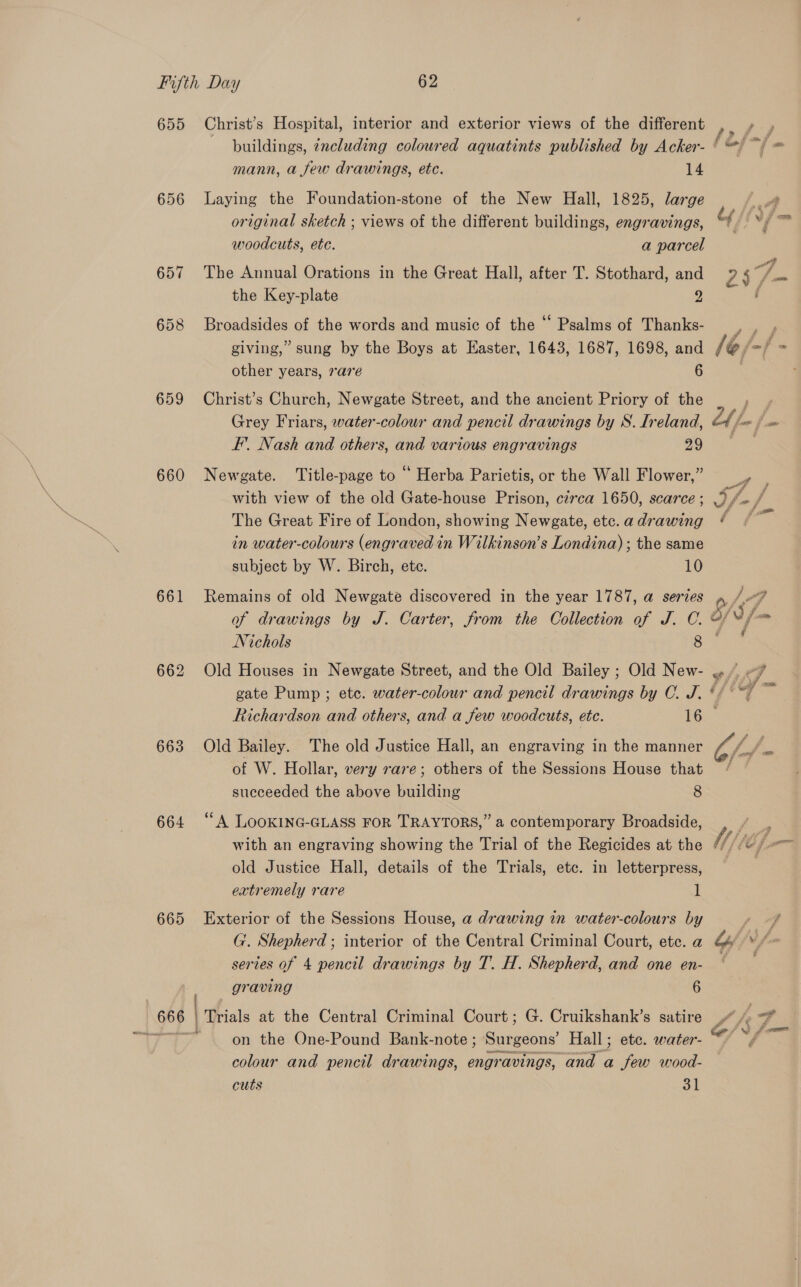 Fifth Day 62
655 Christ's Hospital, interior and exterior views of the different
buildings, including coloured aquatints published by Acker-
mann, a few drawings, etc. 14
656 Laying the Foundation-stone of the New Hall, 1825, large
original sketch; views of the different buildings, engravings,
woodcuts, etc. a parcel
657 The Annual Orations in the Great Hall, after T. Stothard, and
the Key-plate 2
658 Broadsides of the words and music of the “Psalms of Thanks-
giving,” sung by the Boys at Easter, 1643, 1687, 1698, and
other years, rare 6
659 Christ's Church, Newgate Street, and the ancient Priory of the
Grey Friars, water-colour and pencil drawings by S. Ireland,
F. Nash and others, and various engravings 29
660 Newgate. Title-page to “Herba Parietis, or the Wall Flower,”
with view of the old Gate-house Prison, circa 1650, scarce;
The Great Fire of London, showing Newgate, etc. a drawing
in water-colours (engraved in Wilkinson's Londina); the same
subject by W. Birch, etc. 10
661 Remains of old Newgate discovered in the year 1787, a series
of drawings by J. Carter, from the Collection of J. C.
Nichols 8
662 Old Houses in Newgate Street, and the Old Bailey; Old New-
gate Pump; etc. water-colour and pencil drawings by C. J.
Richardson and others, and a few woodcuts, etc. 16
663 Old Bailey. The old Justice Hall, an engraving in the manner
of W. Hollar, very rare; others of the Sessions House that
succeeded the above building 8
664 “A LOOKING-GLASS FOR TRAYTORS,” a contemporary Broadside,
with an engraving showing the Trial of the Regicides at the
old Justice Hall, details of the Trials, etc. in letterpress,
extremely rare 1
665 Exterior of the Sessions House, a drawing in water-colours by
G. Shepherd; interior of the Central Criminal Court, etc. a
series of 4 pencil drawings by T. H. Shepherd, and one en-
graving 6
666 Trials at the Central Criminal Court; G. Cruikshank's satire
on the One-Pound Bank-note; Surgeons' Hall; etc. water-
colour and pencil drawings, engravings, and a few wood-
cuts 31